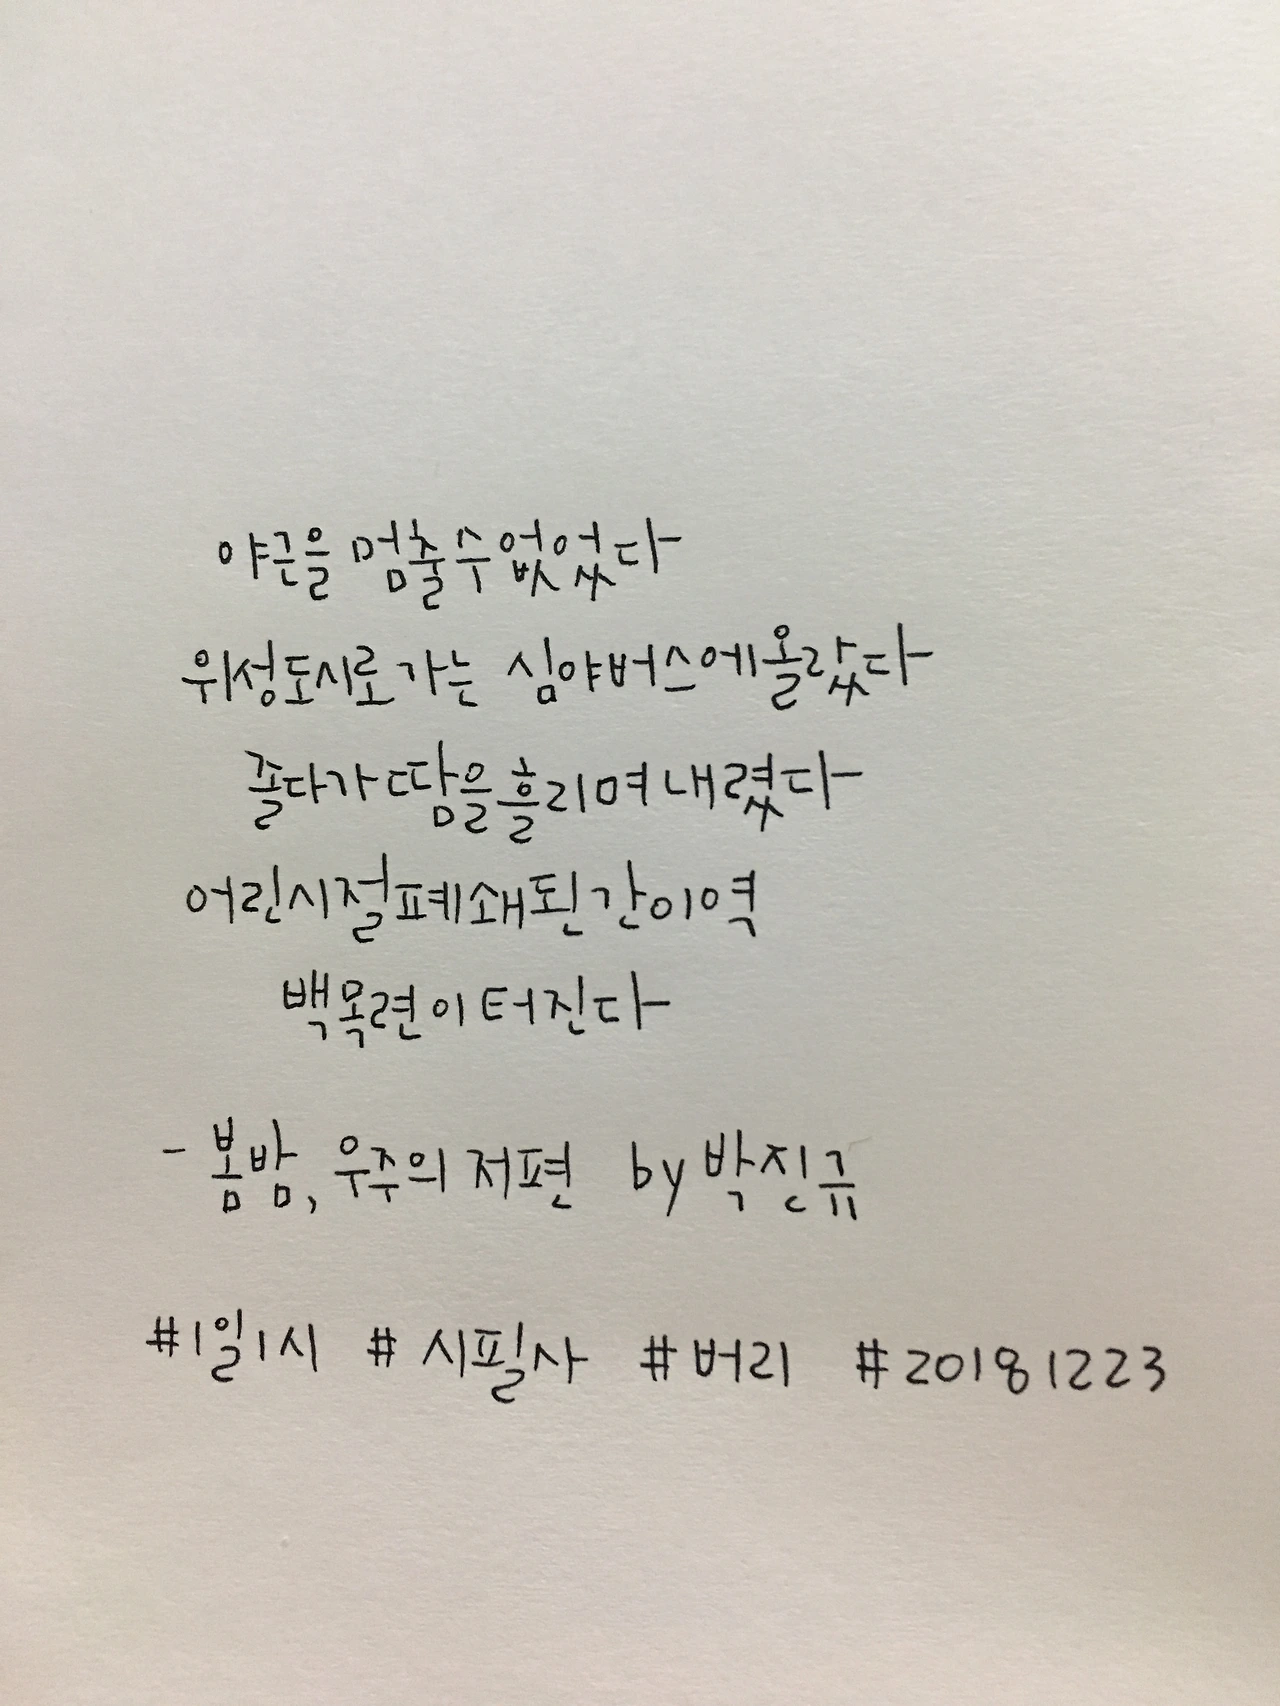 야근을 멈출 수 없었다
위성도시로 가는 심야버스에 올랐다
졸다가 땀을 흘리며 내렸다
어린시절 폐쇄된 간이역
백목련이 터진다
- 봄밤, 우주의 저편 by 박진규
#1일1시 #시필사 #버리 #20181223